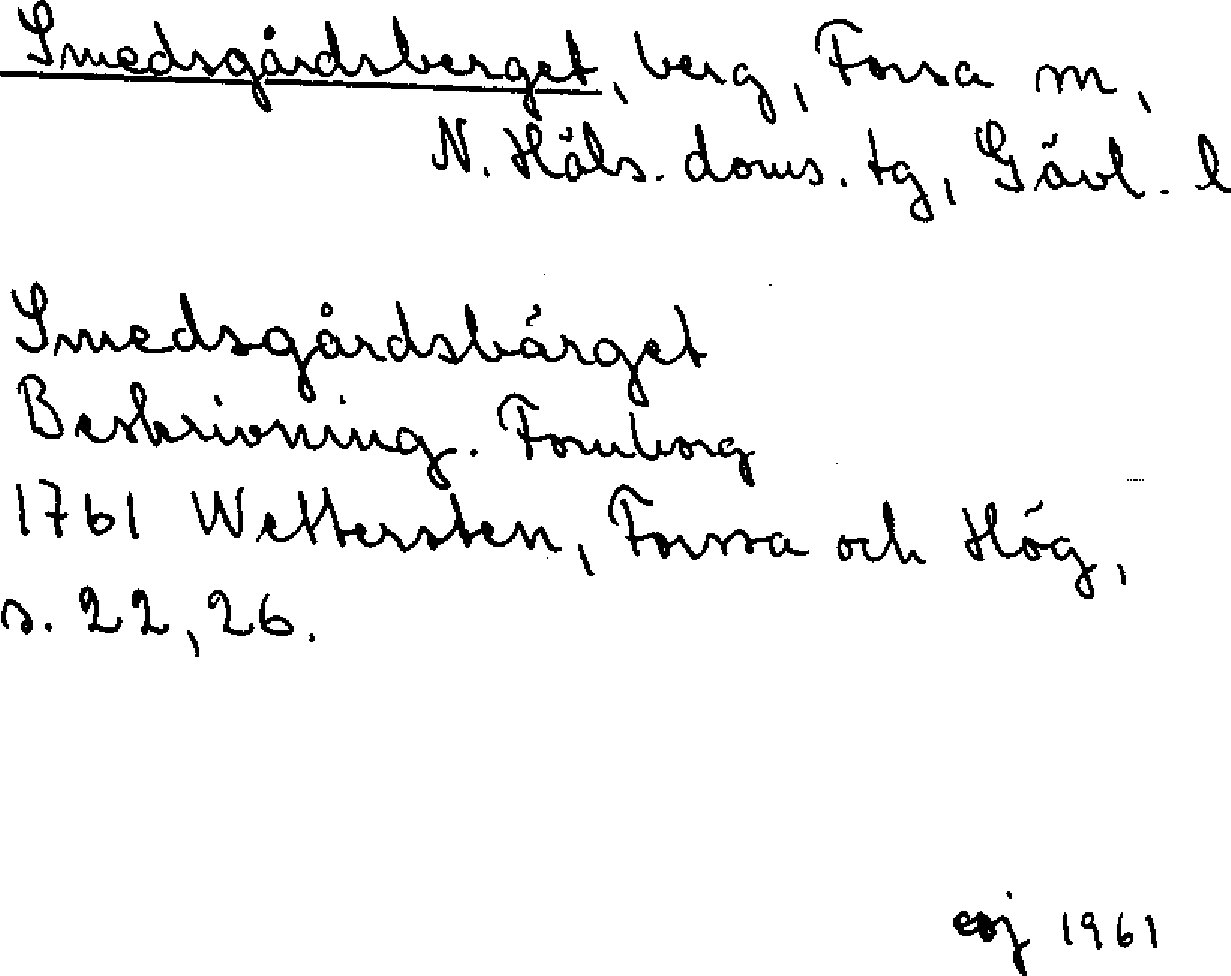 Smedsgårdsberget, berg, Forsa sn,
N. Häls. doms. tg, Gävl. l
Smedsgårdsbärget
Beskrivning. Fornborg
1761 Wettersten, Forssa och Hög,
s. 22, 26.
1961